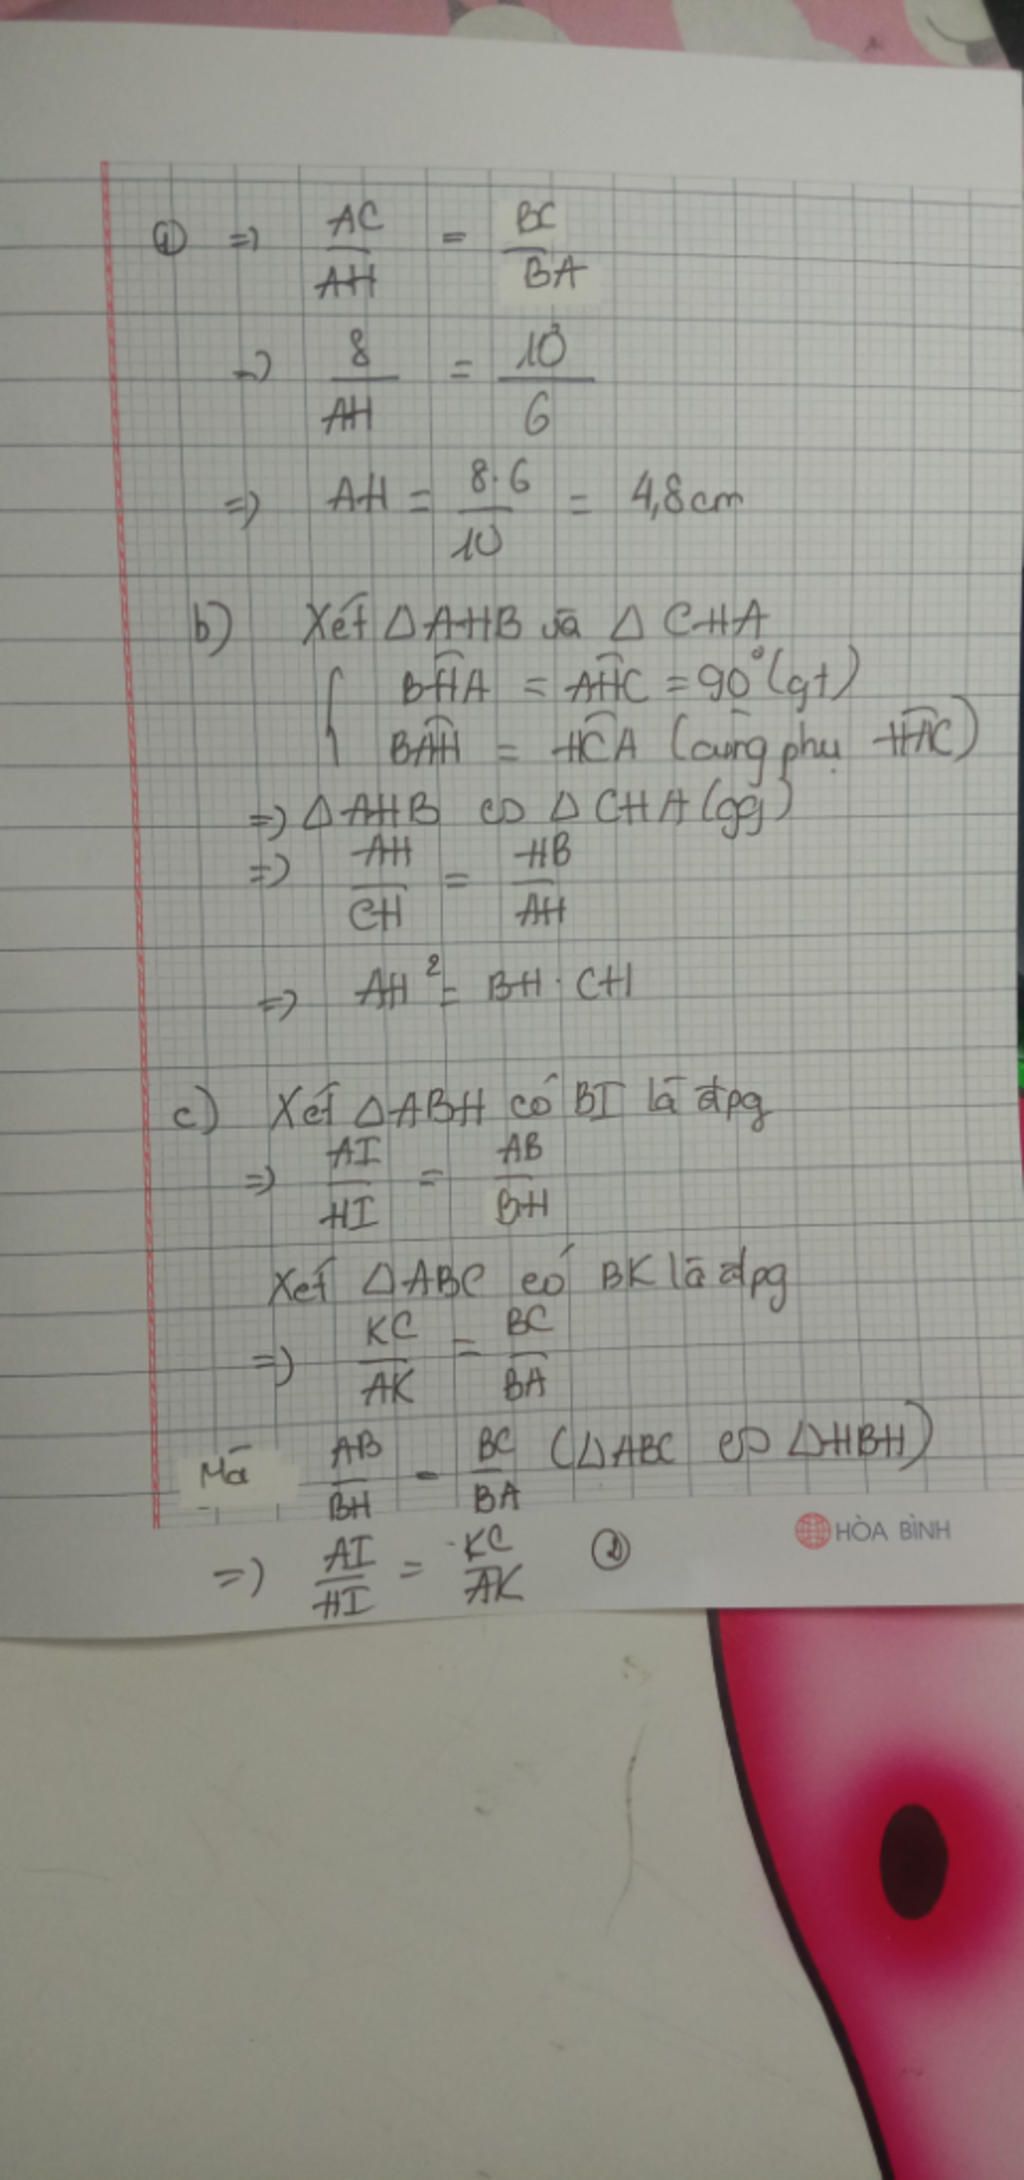 ① => AC/AH = BC/BA
=> 8/AH = 10/6
=> AH = 8.6/10 = 4,8cm
b) Xét △AHB và △CHA
{ BĤA = AĤC = 90° (gt)
BÂH = HĈA (cùng phụ HÂC)
=> △AHB ∽ △CHA (gg)
=> AH/CH = HB/AH
=> AH² = BH . CH
c) Xét △ABH có BI là đpg
=> AI/HI = AB/BH
Xét △ABC có BK là đpg
=> KC/AK = BC/BA
Mà AB/BH = BC/BA (△ABC ∽ △HBH)
HÒA BÌNH
=> AI/HI = KC/AK ②